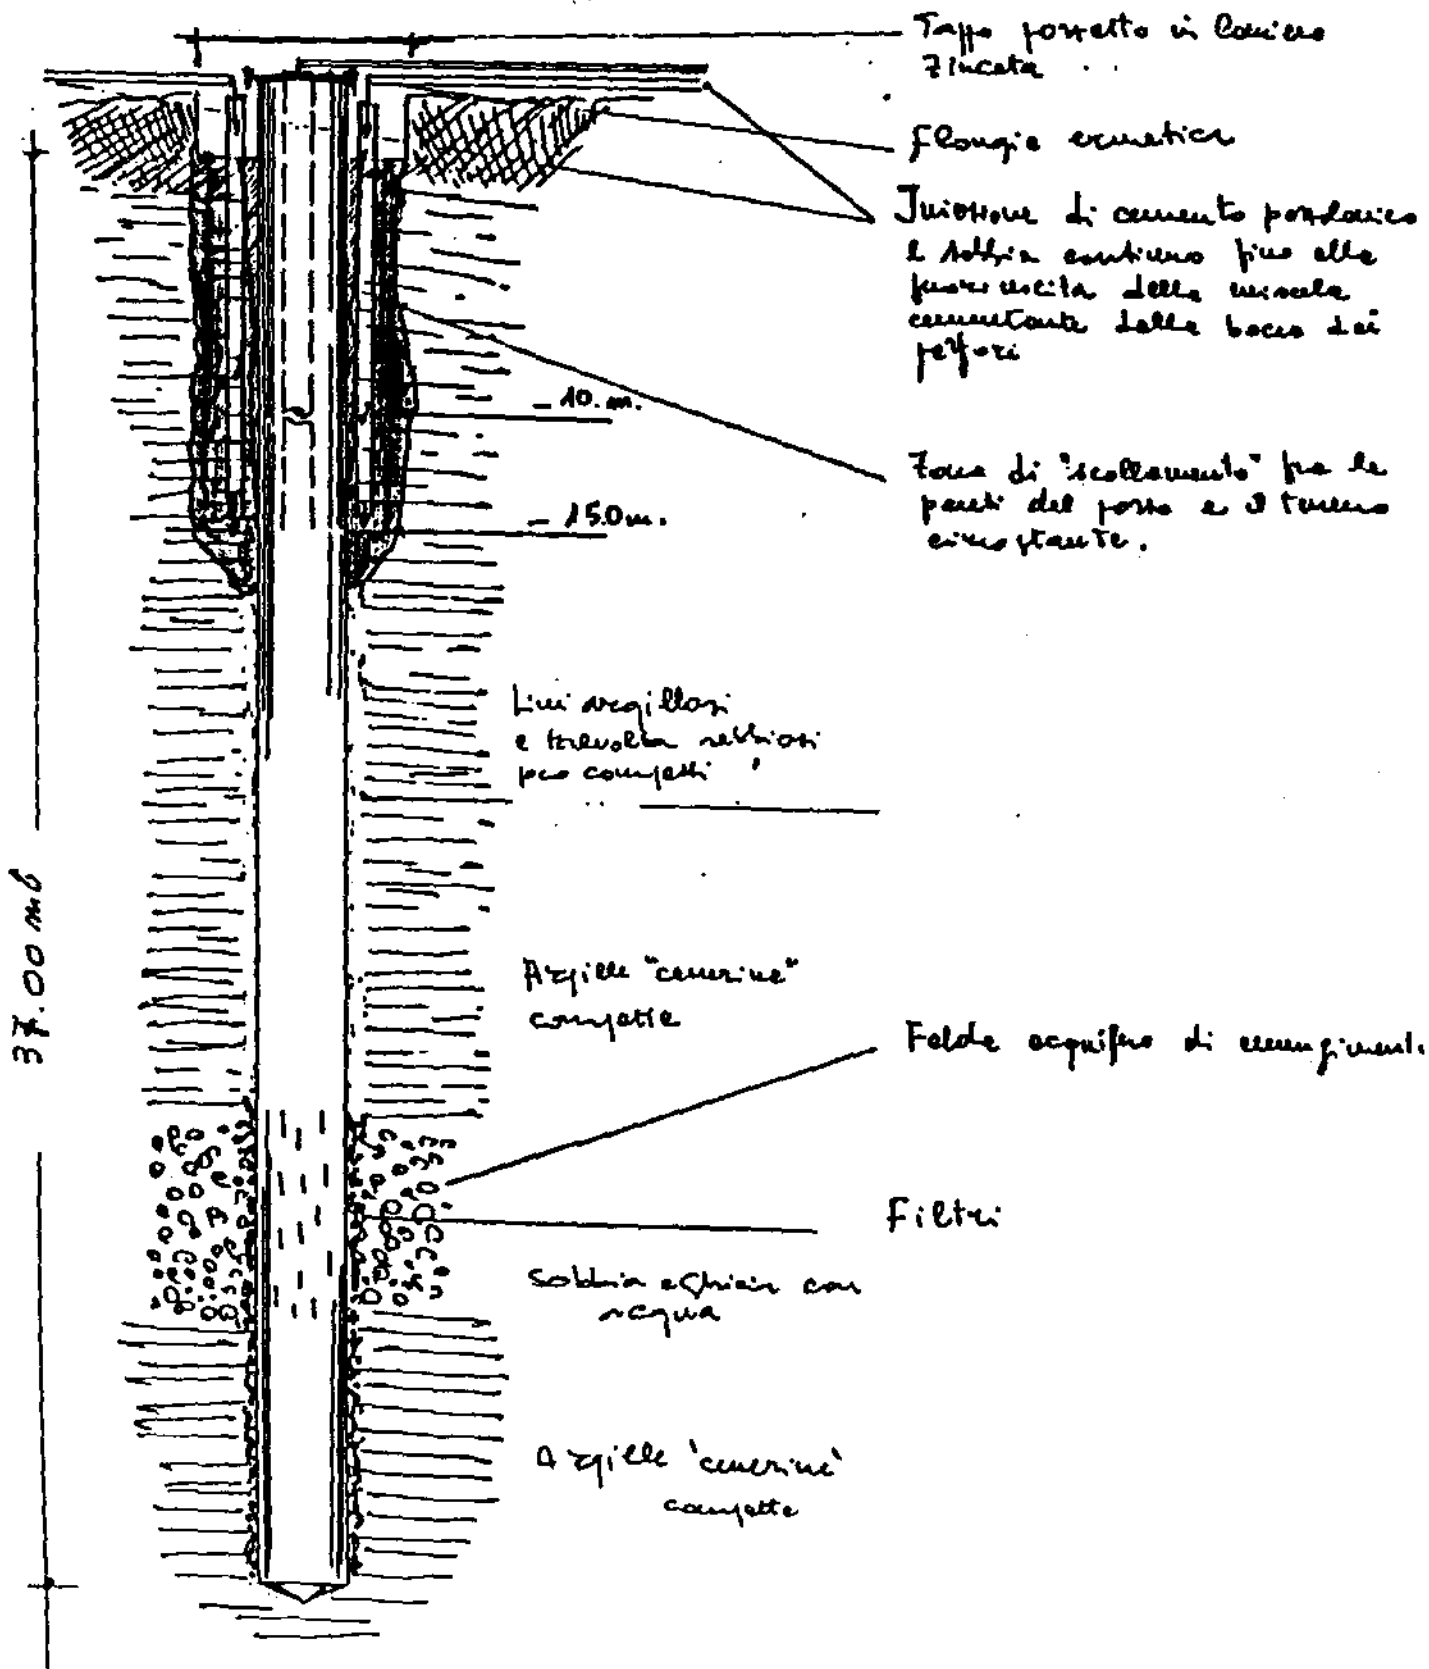 Tappo pozzetto in lamiera
zincata
Flangia ermetica
Iniezione di cemento pozzolanico
e sabbia continuo fino alla
fuoriuscita della miscela
cementante dalla bocca dei
perfori
- 10. m.
Zona di "scollamento" fra le
pareti del pozzo e il terreno
circostante.
- 15.0 m.
Limi argillosi
e talvolta sabbiosi
poco compatti
37.00 ml
Argille "cenerine"
compatte
Falda acquifera di emungimento
Filtri
Sabbia e ghiaia con
acqua
Argille "cenerine"
compatte